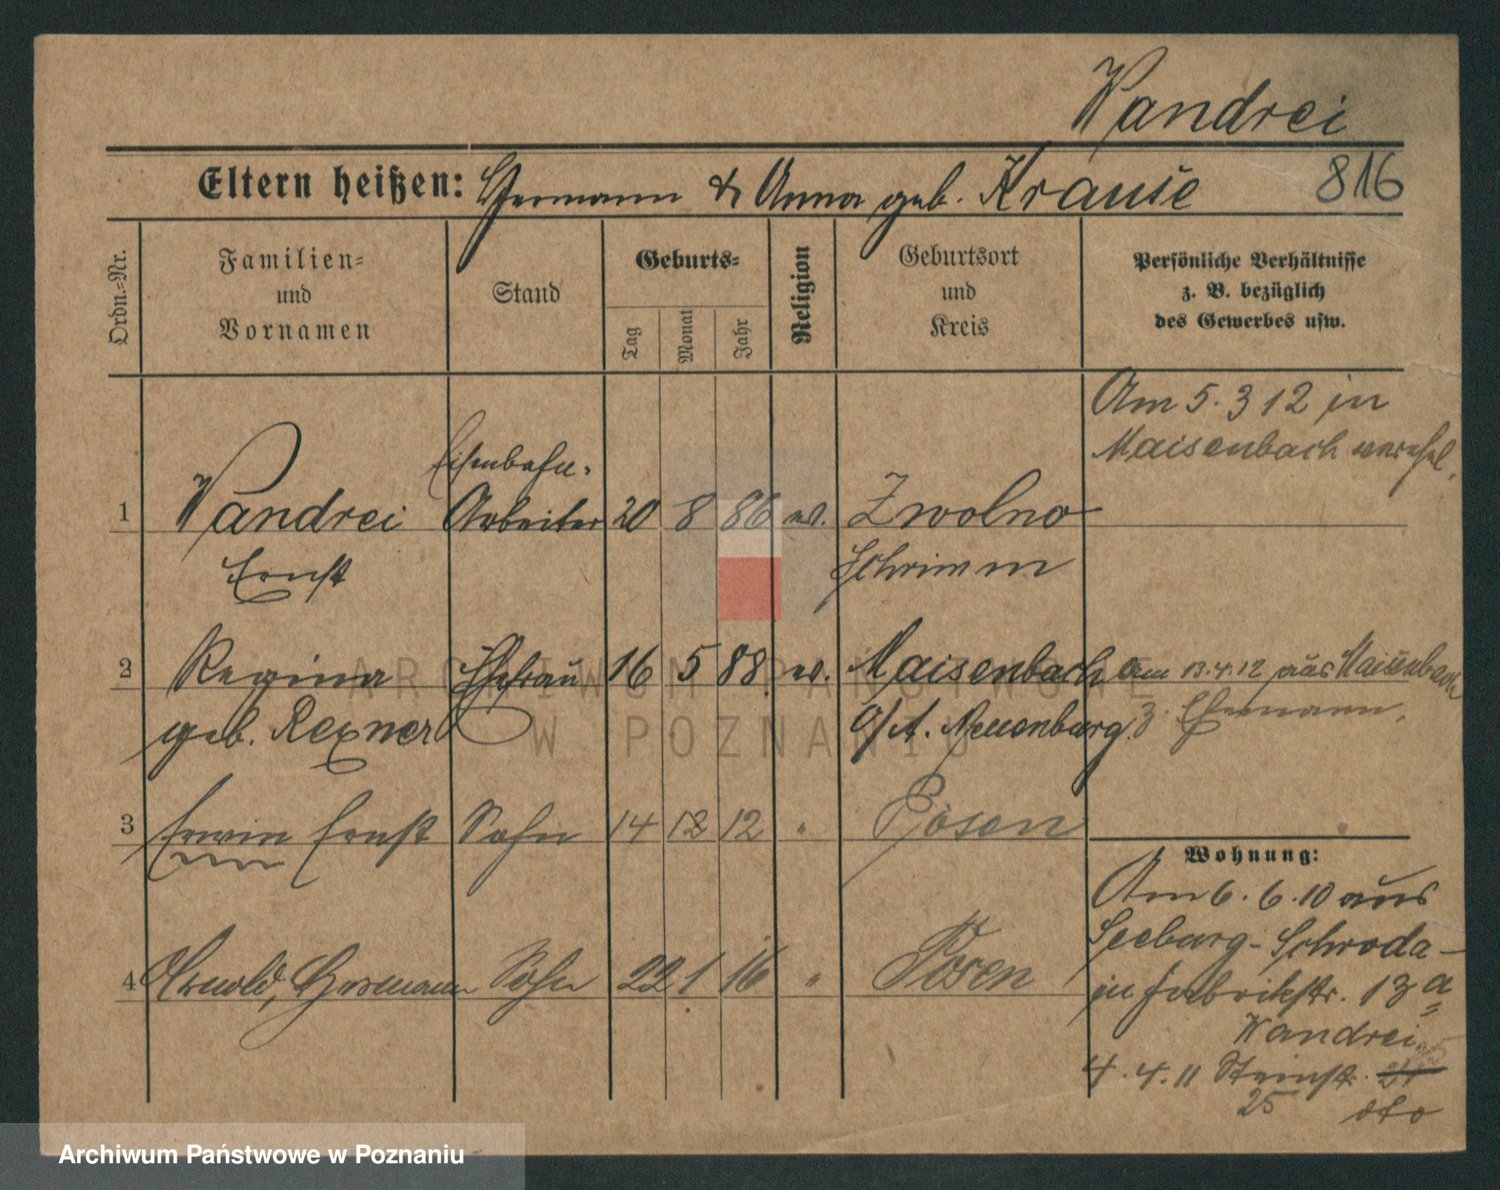 Wandrei
Eltern heißen: Hermann & Anna geb. Krause 816
Ordn.-Nr.
Familien-
und
Vornamen
Stand
Geburts-
Tag
Monat
Jahr
Religion
Geburtsort
und
Kreis
Persönliche Verhältnisse
z. B. bezüglich
des Gewerbes usw.
Am 5. 3 12 in
Maisenbach verehel.
Eisenbahn-
1 Wandrei Arbeiter 20 8 86 ev. Zwolno
Ernst Schrimm
2 Regina Ehefrau 16 5 88 ev. Maisenbach am 13.4.12 aus Maisenbach
geb. Rexner O/A. Neuenburg z. Ehemann.
3 Erwin Ernst Sohn 14 12 12 " Posen
Wohnung:
Am 6. 6. 10 aus
Seeburg - Schroda -
in Fabrikstr. 13 a
4 Arnold, Hermann Sohn 22 1 16 " Posen
Wandrei
4. 4. 11 Steinstr.
25 dto
ARCHIWUM PAŃSTWOWE
W POZNANIU
Archiwum Państwowe w Poznaniu